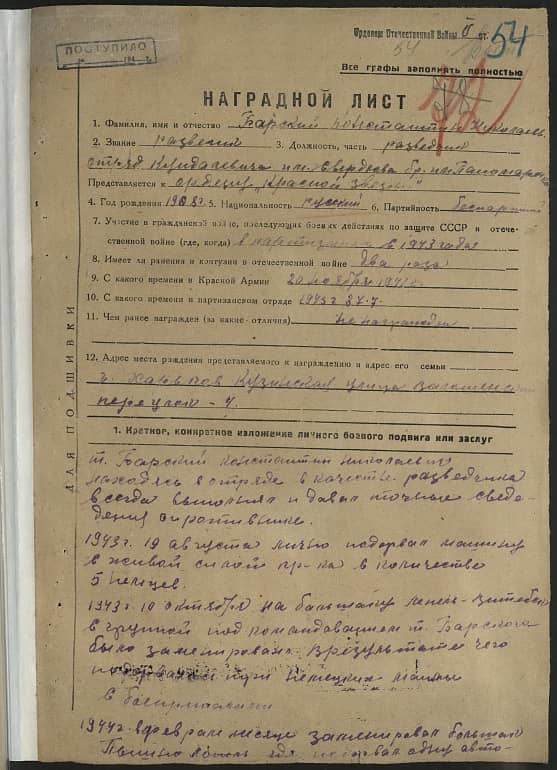 Орденом Отечественной Войны II ст.
54
54
ПОСТУПИЛО
Все графы заполнять полностью
НАГРАДНОЙ ЛИСТ
1. Фамилия, имя и отчество Барский Константин Николаев.
2. Звание разведчик 3. Должность, часть разведчик
отряд им. Свердлова бр. им. Панамарен
Представляется к ордену „Красной звезды"
4. Год рождения 1908г. 5. Национальность русский 6. Партийность беспартий
7. Участие в гражданской войне, последующих боевых действиях по защите СССР и отече-
ственной войне (где, когда) в партизанах в 1943 года
8. Имеет ли ранения и контузии в отечественной войне два раза
9. С какого времени в Красной Армии 20 ноября 1941г.
10. С какого времени в партизанском отряде 1943г
11. Чем ранее награжден (за какие отличия) не награжден
12. Адрес места рождения представляемого к награждению и адрес его семьи
г. Харьков Кузинская улица
переулок - 4.
ДЛЯ ПОДШИВКИ
1. Краткое, конкретное изложение личного боевого подвига или заслуг
т. Барский Константин Николаевич
находясь в отряде в качестве разведчика
всегда выполнял и давал точные сведе-
дения о противнике.
1943г. 19 августа лично подорвал машину
с живой силой пр-ка в количестве
5 немцев.
1943г. 10 октября на большаку Лепель-Витебск
в группой под командованием т. Барского
было заменирована. В результате чего
подорвали три немецких машины
с боеприпасами
1944г. в феврале месяце заменировал большак
где подорвал одну авто-